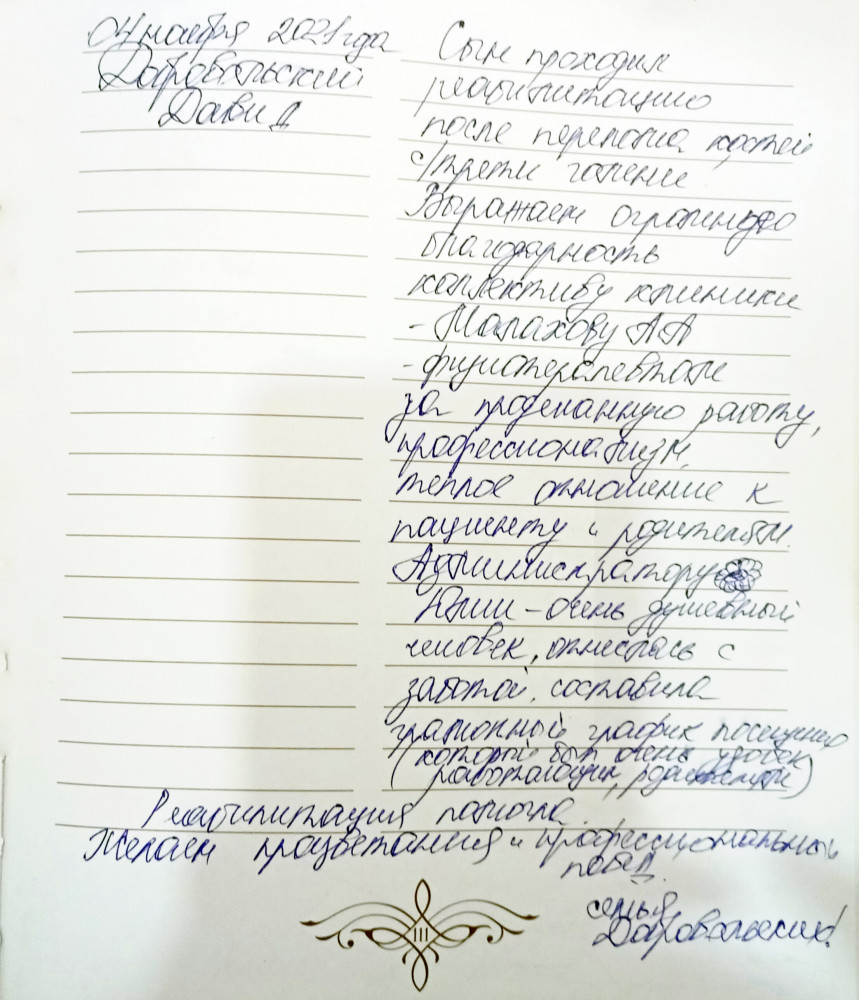 04 ноября 2021 года
Добровольский
Давид
Сын проходил
реабилитацию
после перелома костей
с/трети голени
Выражаем огромную
благодарность
коллективу клиники
- Малахову АА
- физиотерапевтам
за проделанную работу,
профессионализм,
теплое отношение к
пациенту и родителям.
Администратору
Юлии - очень душевный
человек, отнеслась с
заботой, составила
грамотный график посещения
(который был очень удобен
работающим родителям)
Реабилитация помогла.
Желаем процветания и профессиональных
побед.
семья
Добровольских!
III